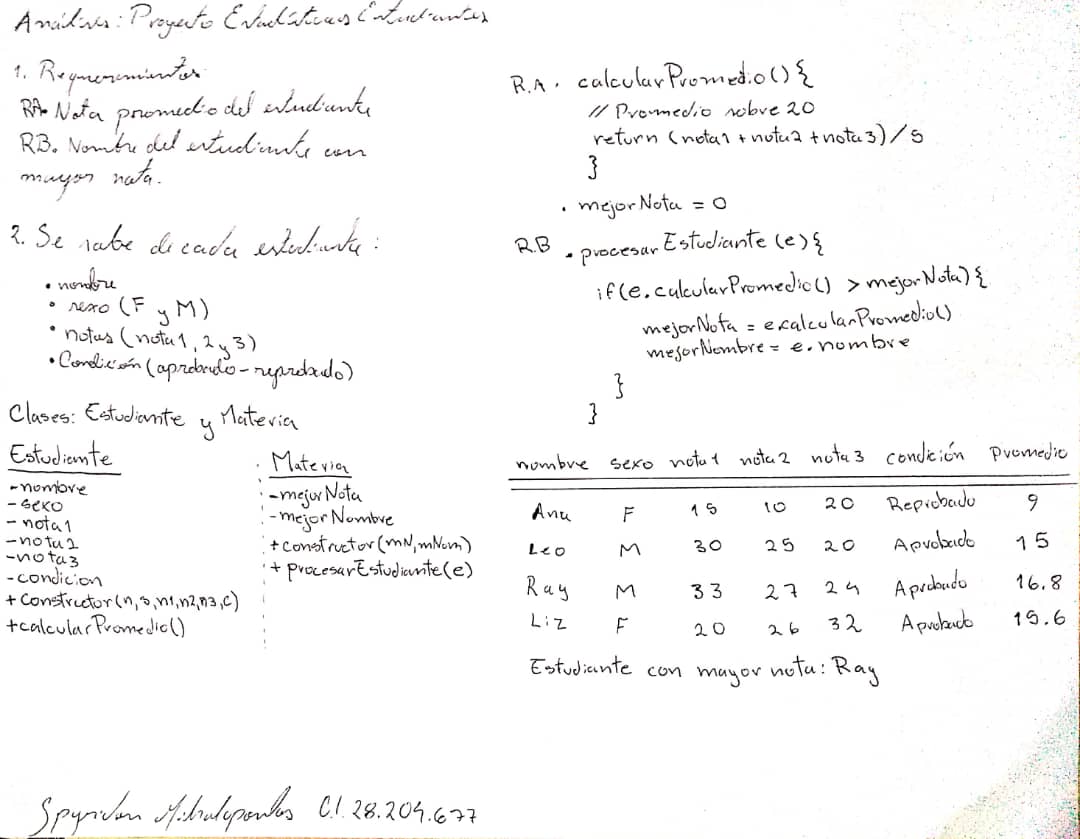 Análisis: Proyecto Estadísticas Estudiantes
1. Requerimientos
RA. Nota promedio del estudiante
RB. Nombre del estudiante con
mayor nota.
2. Se sabe de cada estudiante:
• nombre
• sexo (F y M)
• notas (nota1, 2 y 3)
• Condición (aprobado - reprobado)
Clases: Estudiante y Materia
Estudiante
-nombre
-sexo
-nota1
-nota2
-nota3
-condicion
+Constructor(n,s,n1,n2,n3,c)
+calcularPromedio()
Materia
-mejorNota
-mejorNombre
+constructor(mN,mNom)
+procesarEstudiante(e)
R.A. calcularPromedio(){
// Promedio sobre 20
return (nota1 + nota2 + nota3)/5
}
. mejorNota = 0
R.B . procesarEstudiante(e){
if(e.calcularPromedio() > mejorNota){
mejorNota = e.calcularPromedio()
mejorNombre = e.nombre
}
}
nombre sexo nota1 nota2 nota3 condición Promedio
Ana F 15 10 20 Reprobado 9
Leo M 30 25 20 Aprobado 15
Ray M 33 27 24 Aprobado 16.8
Liz F 20 26 32 Aprobado 15.6
Estudiante con mayor nota: Ray
Spyridon Mihalopoulos C.I. 28.204.677